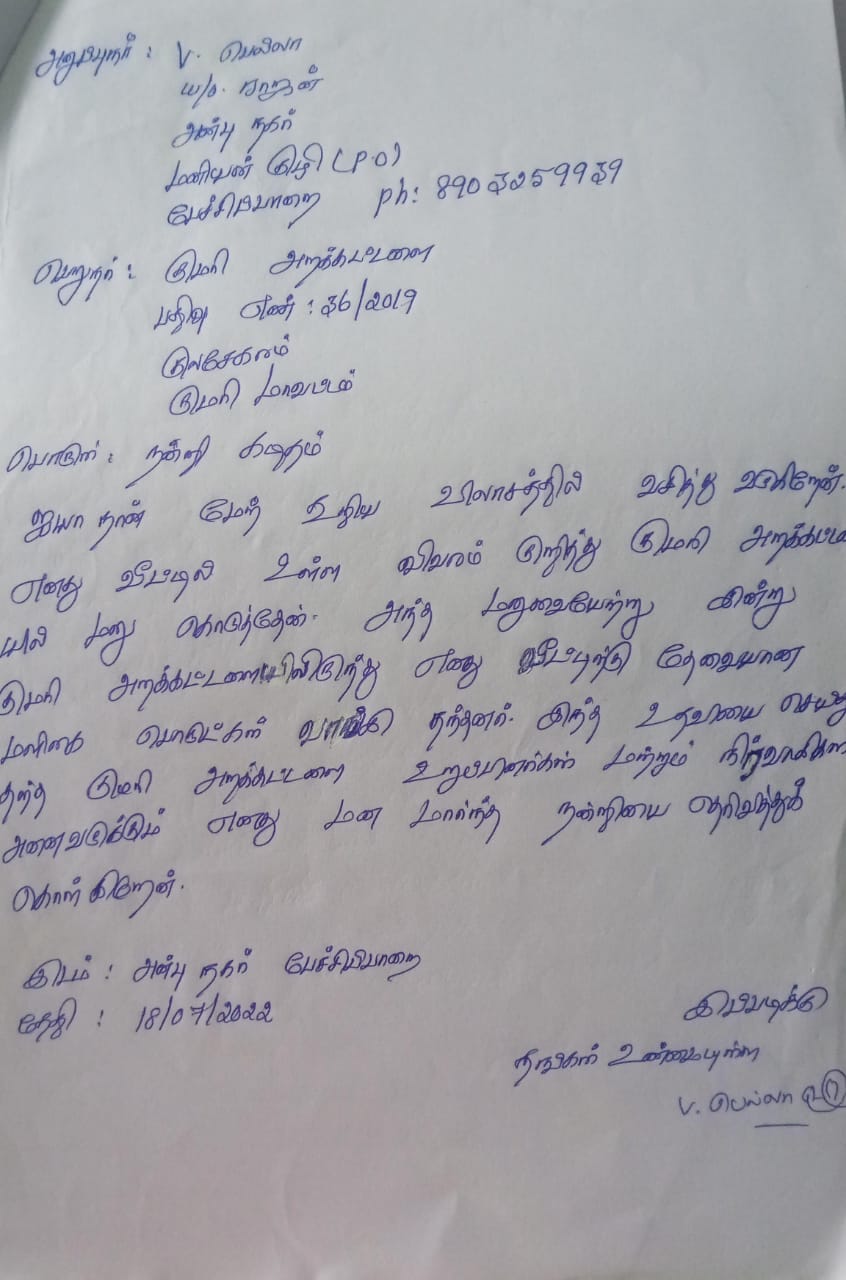 அனுப்புநர் : V. பெல்லா
w/o. ராஜன்
அன்பு நகர்
மணியன் குழி (P.O)
பேச்சிப்பாறை ph: 8903259939
பெறுநர் : குமரி அறக்கட்டளை
பதிவு எண் : 36/2019
குலசேகரம்
குமரி மாவட்டம்
பொருள் : நன்றி கடிதம்
ஐயா நான் மேற் கூறிய விலாசத்தில் வசித்து வருகிறேன்.
எனது வீட்டில் உள்ள விவரம் குறித்து குமரி அறக்கட்டளை
யில் மனு கொடுத்தேன். அந்த மனுவையேற்று இன்று
குமரி அறக்கட்டளையிலிருந்து எனது வீட்டிற்கு தேவையான
மளிகை பொருட்கள் வாங்கி தந்தனர். இந்த உதவியை செய்து
தந்த குமரி அறக்கட்டளை உறுப்பினர்கள் மற்றும் நிர்வாகிகள்
அனைவருக்கும் எனது மன மார்ந்த நன்றியை தெரிவித்துக்
கொள் கிறேன்.
இடம் : அன்பு நகர் பேச்சிப்பாறை
தேதி : 18/07/2022
இப்படிக்கு
தங்கள் உண்மையுள்ள
V. பெல்லா